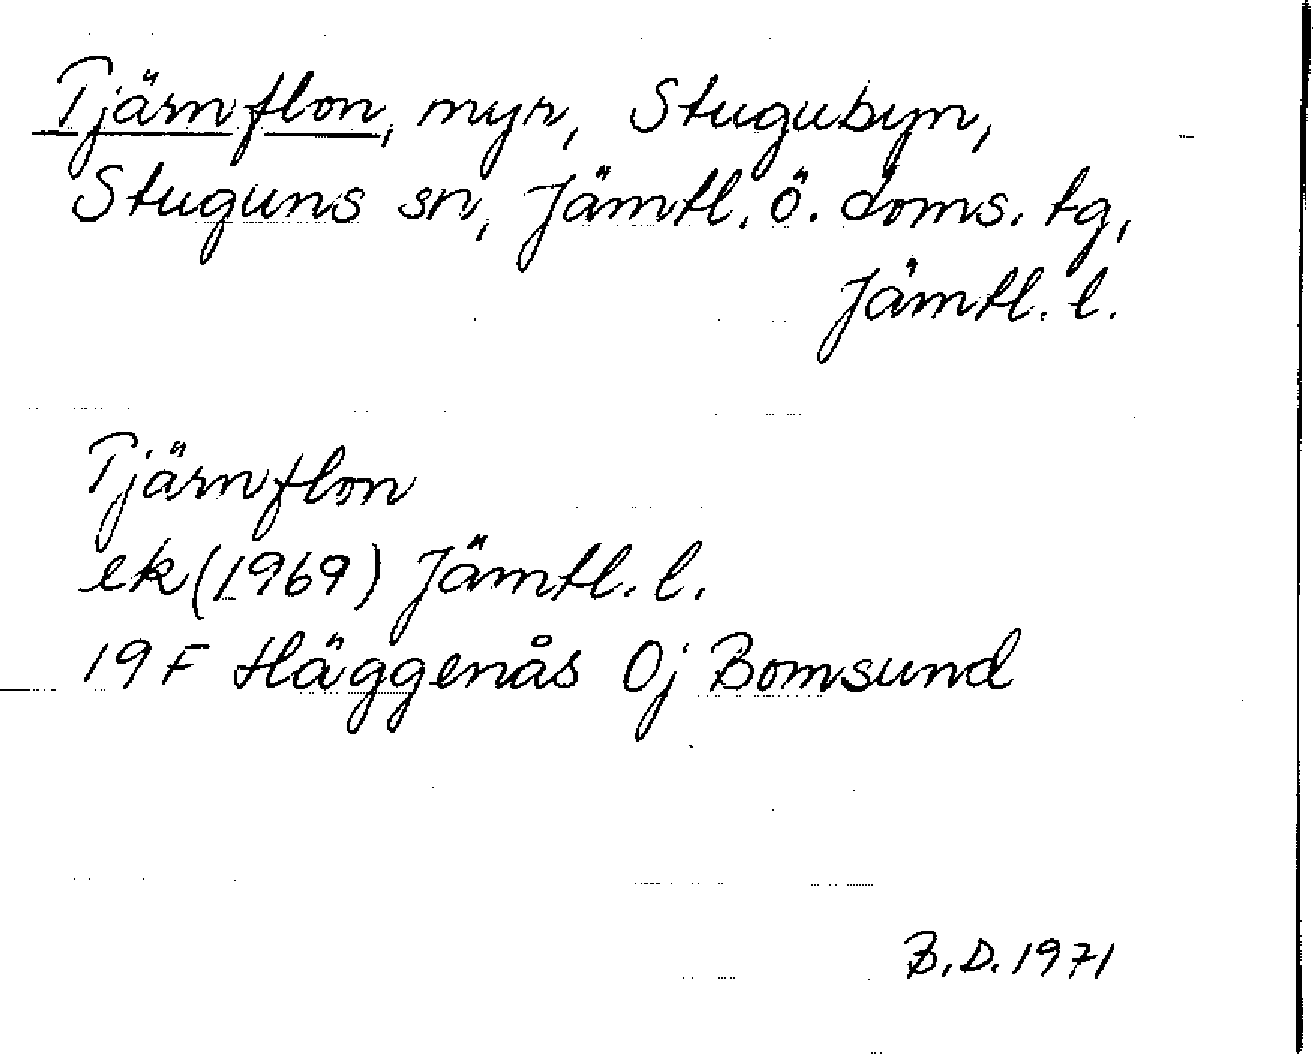 Tjärnflon, myr, Stugubyn,
Stuguns sn, Jämtl. ö. doms. tg,
Jämtl. l.
Tjärnflon
ek (1969) Jämtl. l.
19 F Häggenås Oj Bomsund
B.D. 1971